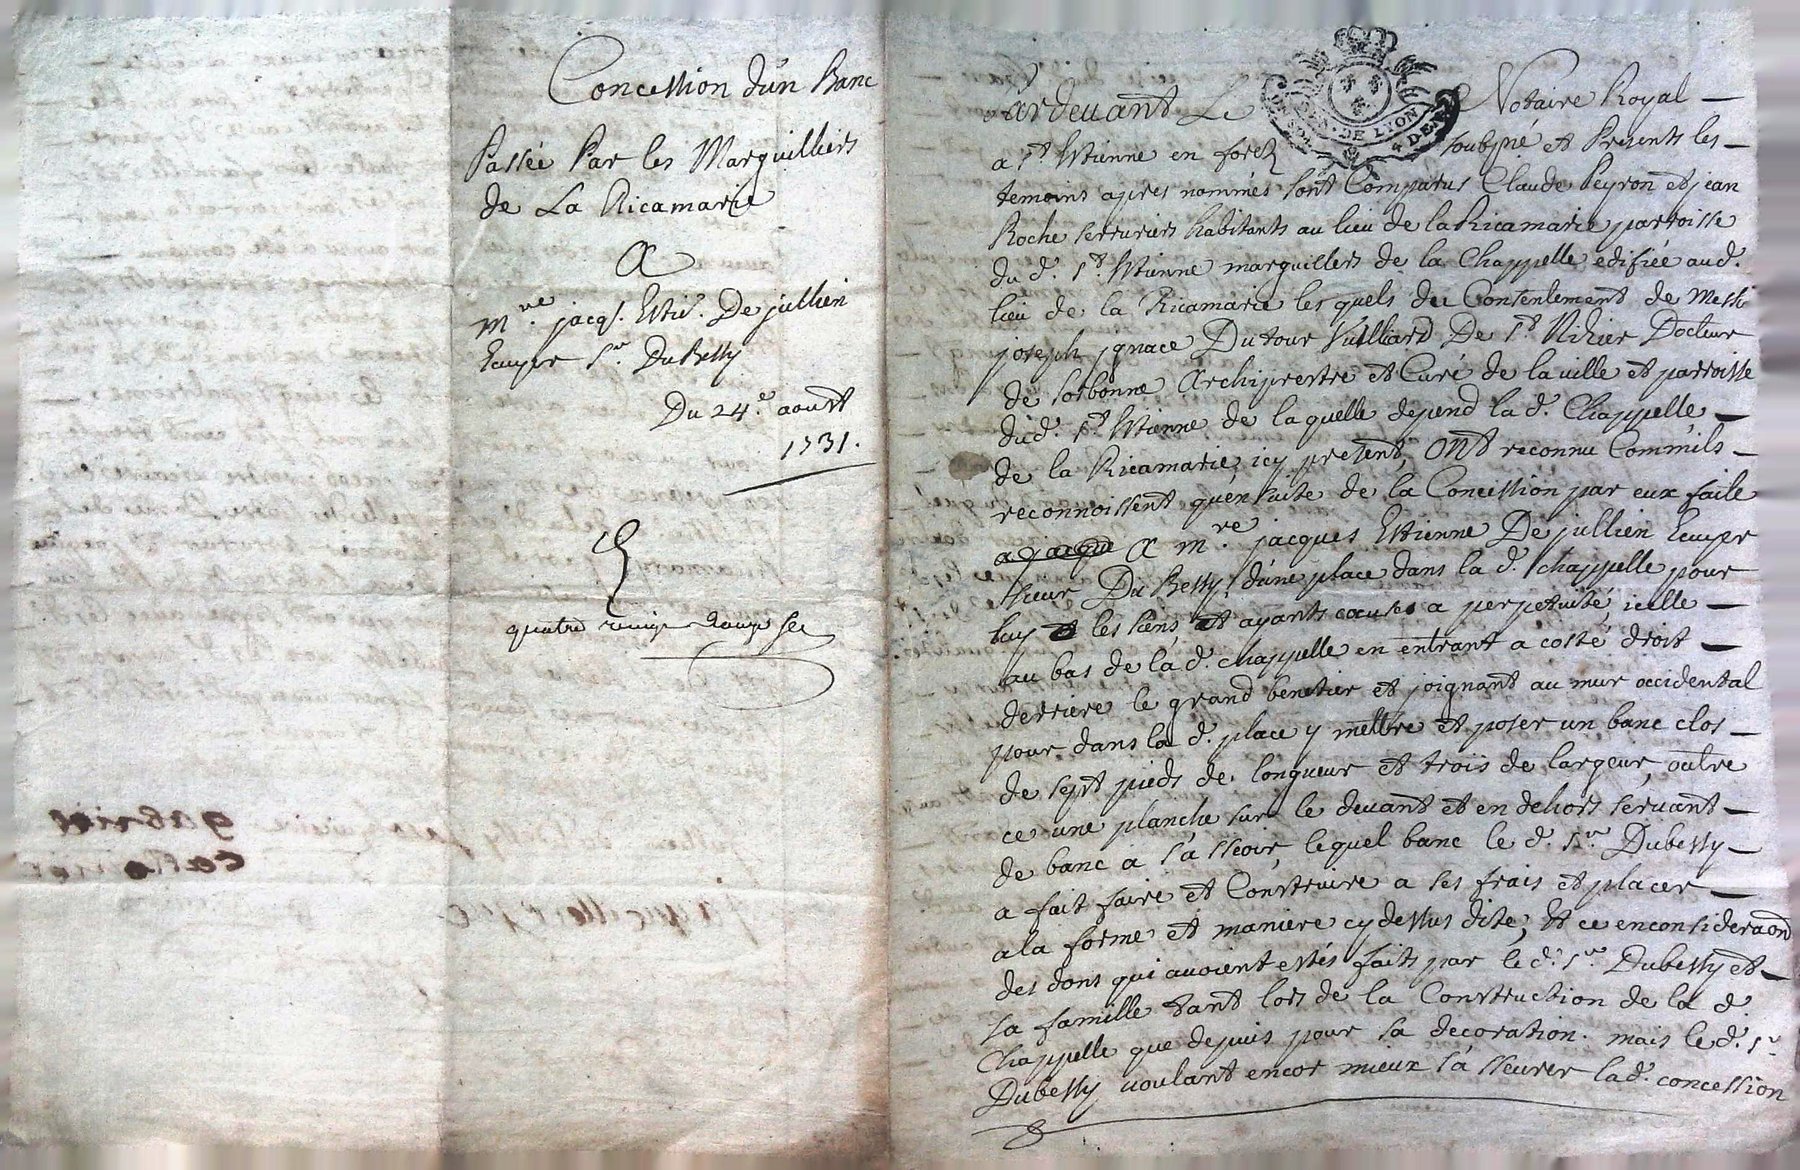 Concession d'un Banc
Passée Par les Marguilliers
de La Ricamarie
A
mre. jacqs. Esti. De jullien
Ecuyer Sr. DuBessy
Du 24e. aoust
1731.
quatre
GEN. DE LYON
Pardevant Le Notaire Royal
a St Estienne en forez soubsné et Presents les
temoins apres nommés sont Comparus Claude Peyron et jean
Roche serruriers habitants au lieu de la Ricamarie parroisse
du d. St. Estienne marguillers de la Chappelle edifiée aud.
lieu de la Ricamarie les quels du Consentement de Messe
joseph jgnace Dutour Vuilliard De St Nizier Docteur
de sorbonne Archiprestre et Curé de la ville et parroisse
dud. St Estienne de laquelle depend la d. Chappelle
de la Ricamarie icy present, ont reconnu Comm'ils
reconnoissent qu'en suite de la Concession par eux faite
A mre jacques Estienne De jullien Ecuyer
sieur Du Bessy, d'une place dans la d. chappelle pour
luy et les siens et ayants causes a perpetuité, icelle
au bas de la d. chappelle en entrant a costé droit
derriere le grand benetier et joignant au mur occidental
pour dans la d. place y mettre et poser un banc clos
de sept pieds de longueur et trois de largeur, outre
ce une planche sur le devant et en dehors servant
de banc a s'asseoir, lequel banc le d. Sr. Dubessy
a fait faire et Construire a ses frais et placer
a la forme et maniere cy dessus dite, Et ce en consideraon
des dons qui avoient estés faits par le d. Sr. Dubessy et
sa famille tant lors de la Construction de la d.
Chappelle que depuis pour sa decoration. mais le d. Sr
Dubessy voulant encor mieux s'asseurer lad. concession
gabriel